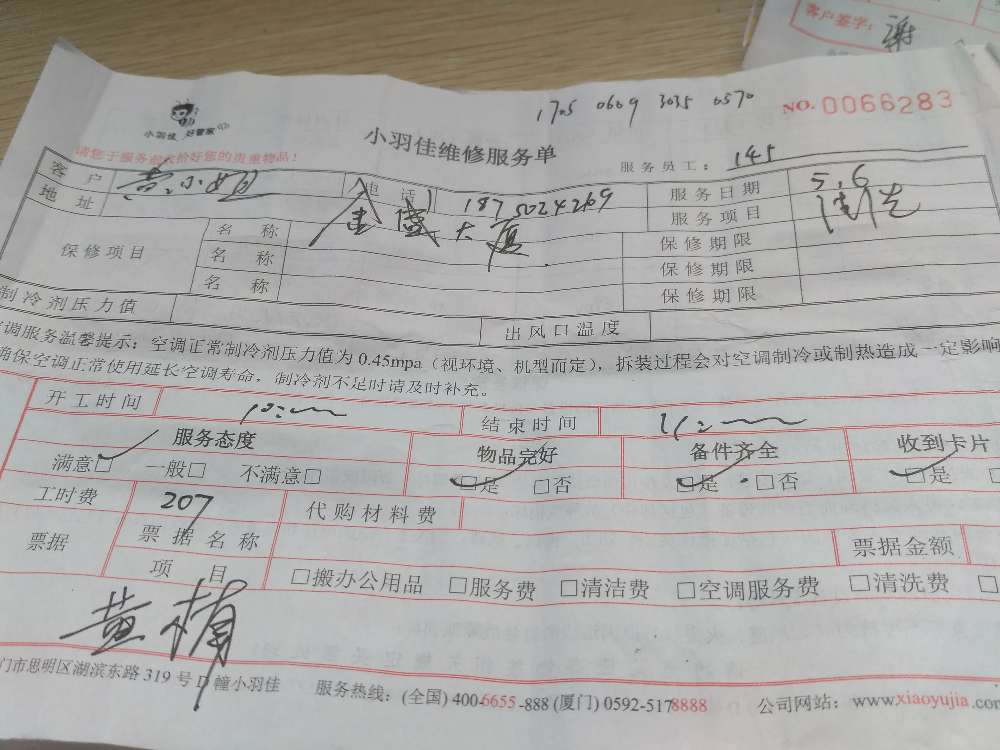 客户签字：谢
1705 0609 3035 0570
NO. 0066283
小羽佳 好管家
小羽佳维修服务单
请您于服务前 价好您的贵重物品！
服务员工： 145
客户 黄小姐 电话 1875024269 服务日期 5.6
地址 金盛大厦 服务项目 清洗
保修项目 名称 保修期限
名称 保修期限
名称 保修期限
制冷剂压力值 出风口温度
调服务温馨提示：空调正常制冷剂压力值为 0.45mpa（视环境、机型而定），拆装过程会对空调制冷或制热造成一定影响
确保空调正常使用延长空调寿命，制冷剂不足时请及时补充。
开工时间 结束时间
服务态度 物品完好 备件齐全 收到卡片
满意□ 一般□ 不满意□ □是 □否 □是 □否 □是
工时费 207 代购材料费
票据 票据名称 票据金额
项目 □搬办公用品 □服务费 □清洁费 □空调服务费 □清洗费 □
黄楠
门市思明区湖滨东路 319 号 D 幢小羽佳 服务热线：(全国) 400-6655-888 (厦门) 0592-5178888 公司网站：www.xiaoyujia.com